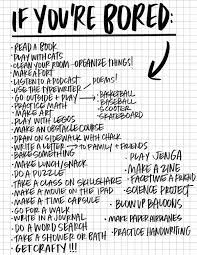 IF YOU'RE BORED:
· READ A BOOK
· PLAY WITH CATS
· CLEAN YOUR ROOM - ORGANIZE THINGS!
· MAKE A FORT
· LISTEN TO A PODCAST
· USE THE TYPEWRITER → POEMS!
· GO OUTSIDE + PLAY → BASKETBALL
BASEBALL
SCOOTER
SKATEBOARD
· PRACTICE MATH
· MAKE ART
· PLAY WITH LEGOS
· MAKE AN OBSTACLE COURSE
· DRAW ON SIDEWALK WITH CHALK
· WRITE A LETTER → TO FAMILY + FRIENDS
· BAKE SOMETHING
· MAKE LUNCH/SNACK
· DO A PUZZLE
· TAKE A CLASS ON SKILLSHARE
· MAKE A MOVIE ON THE IPAD
· MAKE A TIME CAPSULE
· GO FOR A WALK
· WRITE IN A JOURNAL
· DO A WORD SEARCH
· TAKE A SHOWER OR BATH
· GET CRAFTY!!!
· PLAY JENGA
· MAKE A ZINE
· FACETIME A FRIEND
· SCIENCE PROJECT
· BLOW UP BALLOONS
· MAKE PAPER AIRPLANES
· PRACTICE HANDWRITING